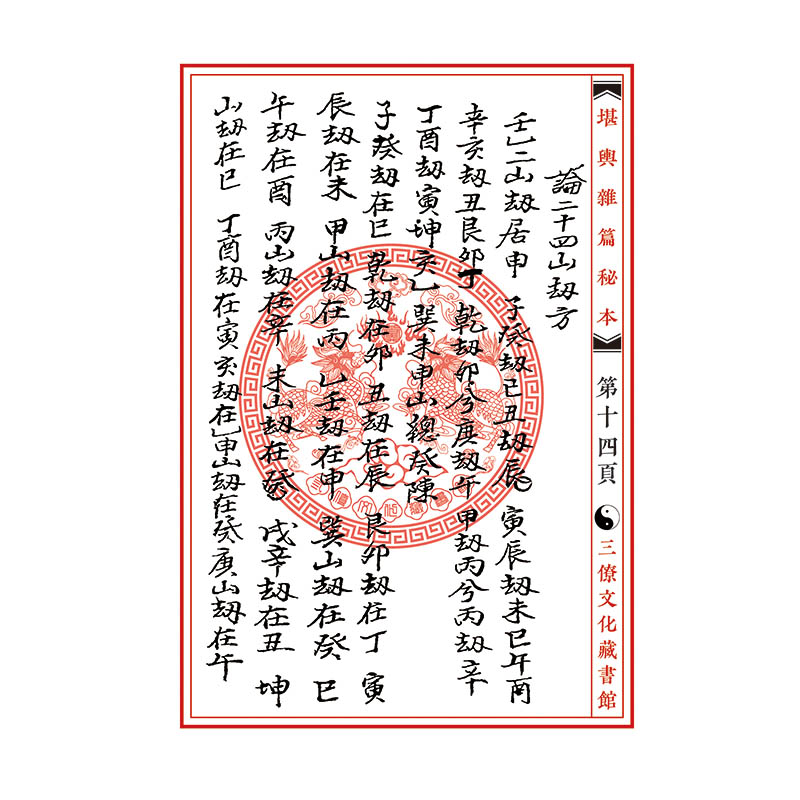 《堪輿雜篇秘本》 第十四頁 三僚文化藏書館
論二十四山刼方
壬乙二山刼居申 子癸刼巳丑刼辰 寅辰刼未巳午酉
辛亥刼丑艮卯丁 乾刼卯兮庚刼午 甲刼丙兮丙刼辛
丁酉刼寅坤亥乙 巽未申山總癸陳
子癸刼在巳 乾刼在卯 丑刼在辰 艮卯刼在丁 寅
辰刼在未 甲山刼在丙 乙壬刼在申 巽山刼在癸 巳
午刼在酉 丙山刼在辛 未山刼在癸 戌辛刼在丑 坤
山刼在巳 丁酉刼在寅 亥刼在乙 申山刼在癸 庚山刼在午